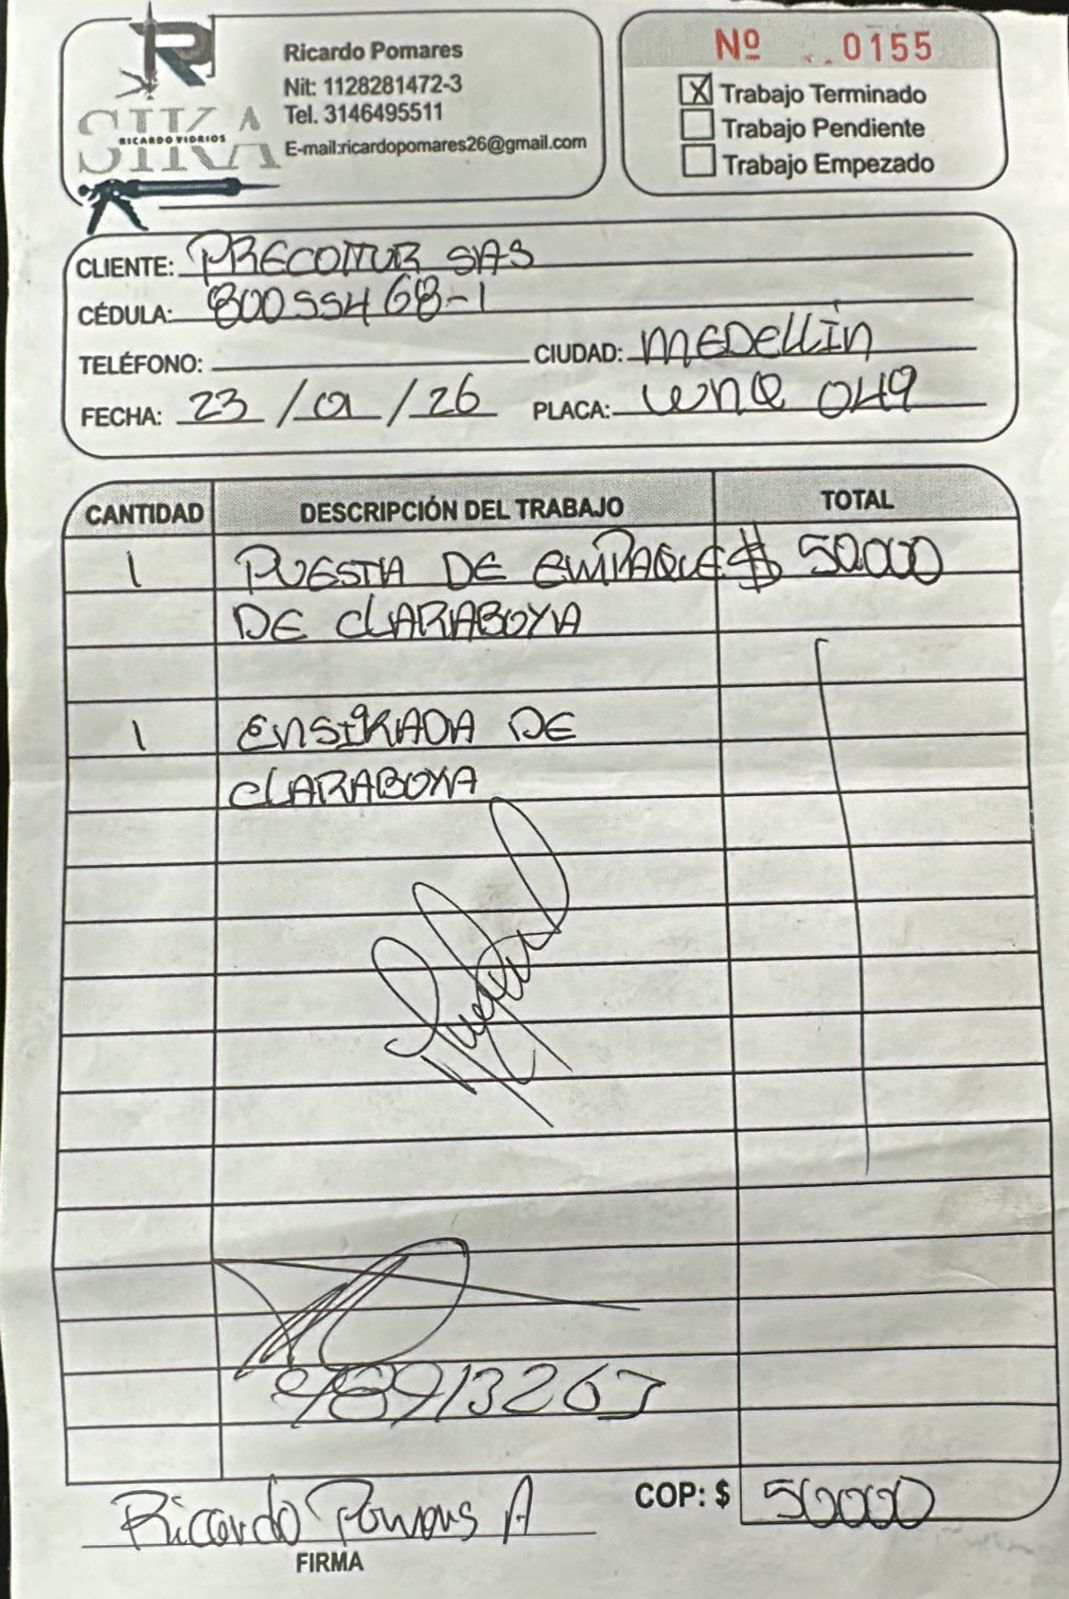 Ricardo Pomares
Nit: 1128281472-3
Tel. 3146495511
E-mail:ricardopomares26@gmail.com
R
SIKA
RICARDO VIDRIOS
Nº 0155
X Trabajo Terminado
Trabajo Pendiente
Trabajo Empezado
CLIENTE: PRECOTUR SAS
CÉDULA: 80055468-1
TELÉFONO: CIUDAD: MEDELLIN
FECHA: 23 / 01 / 26 PLACA: WNQ 049
CANTIDAD DESCRIPCIÓN DEL TRABAJO TOTAL
1 PUESTA DE EMPAQUE $ 50.000
DE CLARABOYA
1 ENSIKADA DE
CLARABOYA
COP: $ 50000
Ricardo Pomares A
FIRMA